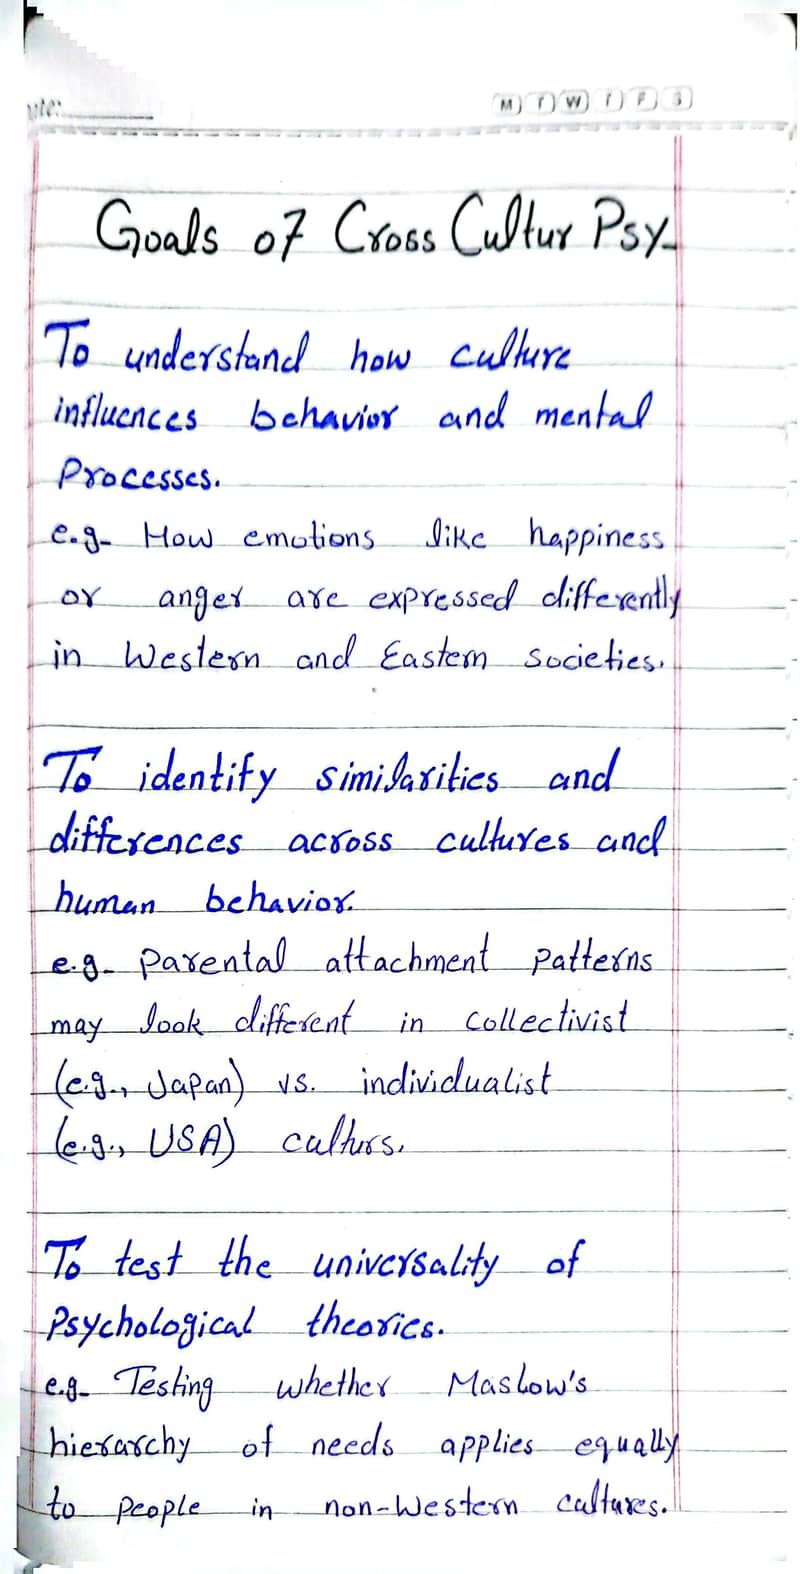 ate:
M T W T F S
Goals of Cross Cultur Psy
To understand how culture
influences behavior and mental
Processes.
e.g- How emotions like happiness
or anger are expressed differently
in Western and Eastern societies.
To identify similarities and
differences across cultures and
human behavior.
e.g- Parental attachment patterns
may look different in collectivist
(e.g., Japan) vs. individualist
(e.g., USA) culturs.
To test the universality of
Psychological theories.
e.g- Testing whether Maslow's
hierarchy of needs applies equally
to people in non-Western cultures.